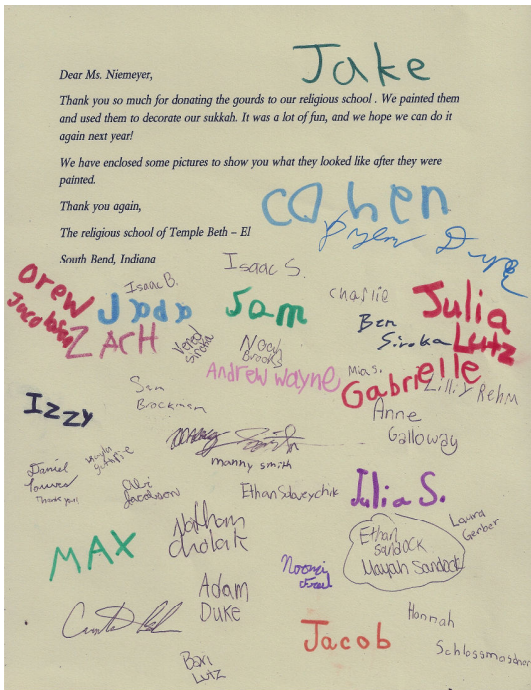 Jake
Dear Ms. Niemeyer,
Thank you so much for donating the gourds to our religious school . We painted them
and used them to decorate our sukkah. It was a lot of fun, and we hope we can do it
again next year!
We have enclosed some pictures to show you what they looked like after they were
painted.
Thank you again,
cohen
The religious school of Temple Beth – El
South Bend, Indiana
Isaac S.
Drew
Jacobson
Isaac B.
Sam
Charlie
Julia
Lutz
Ben
Siroka
ZACH
Vered
Siroka
Noah
Brooks
Andrew Wayne
Mia S.
Gabrielle
Lilly Rehm
Izzy
Sam
Brockman
Anne
Galloway
manny smith
Daniel
Thank you!
Jacobson
Ethan
Julia S.
Laura
Gerber
Ethan
Sandock
Mayah Sandock
MAX
Adam
Duke
Hannah
Jacob
Bari
Lutz